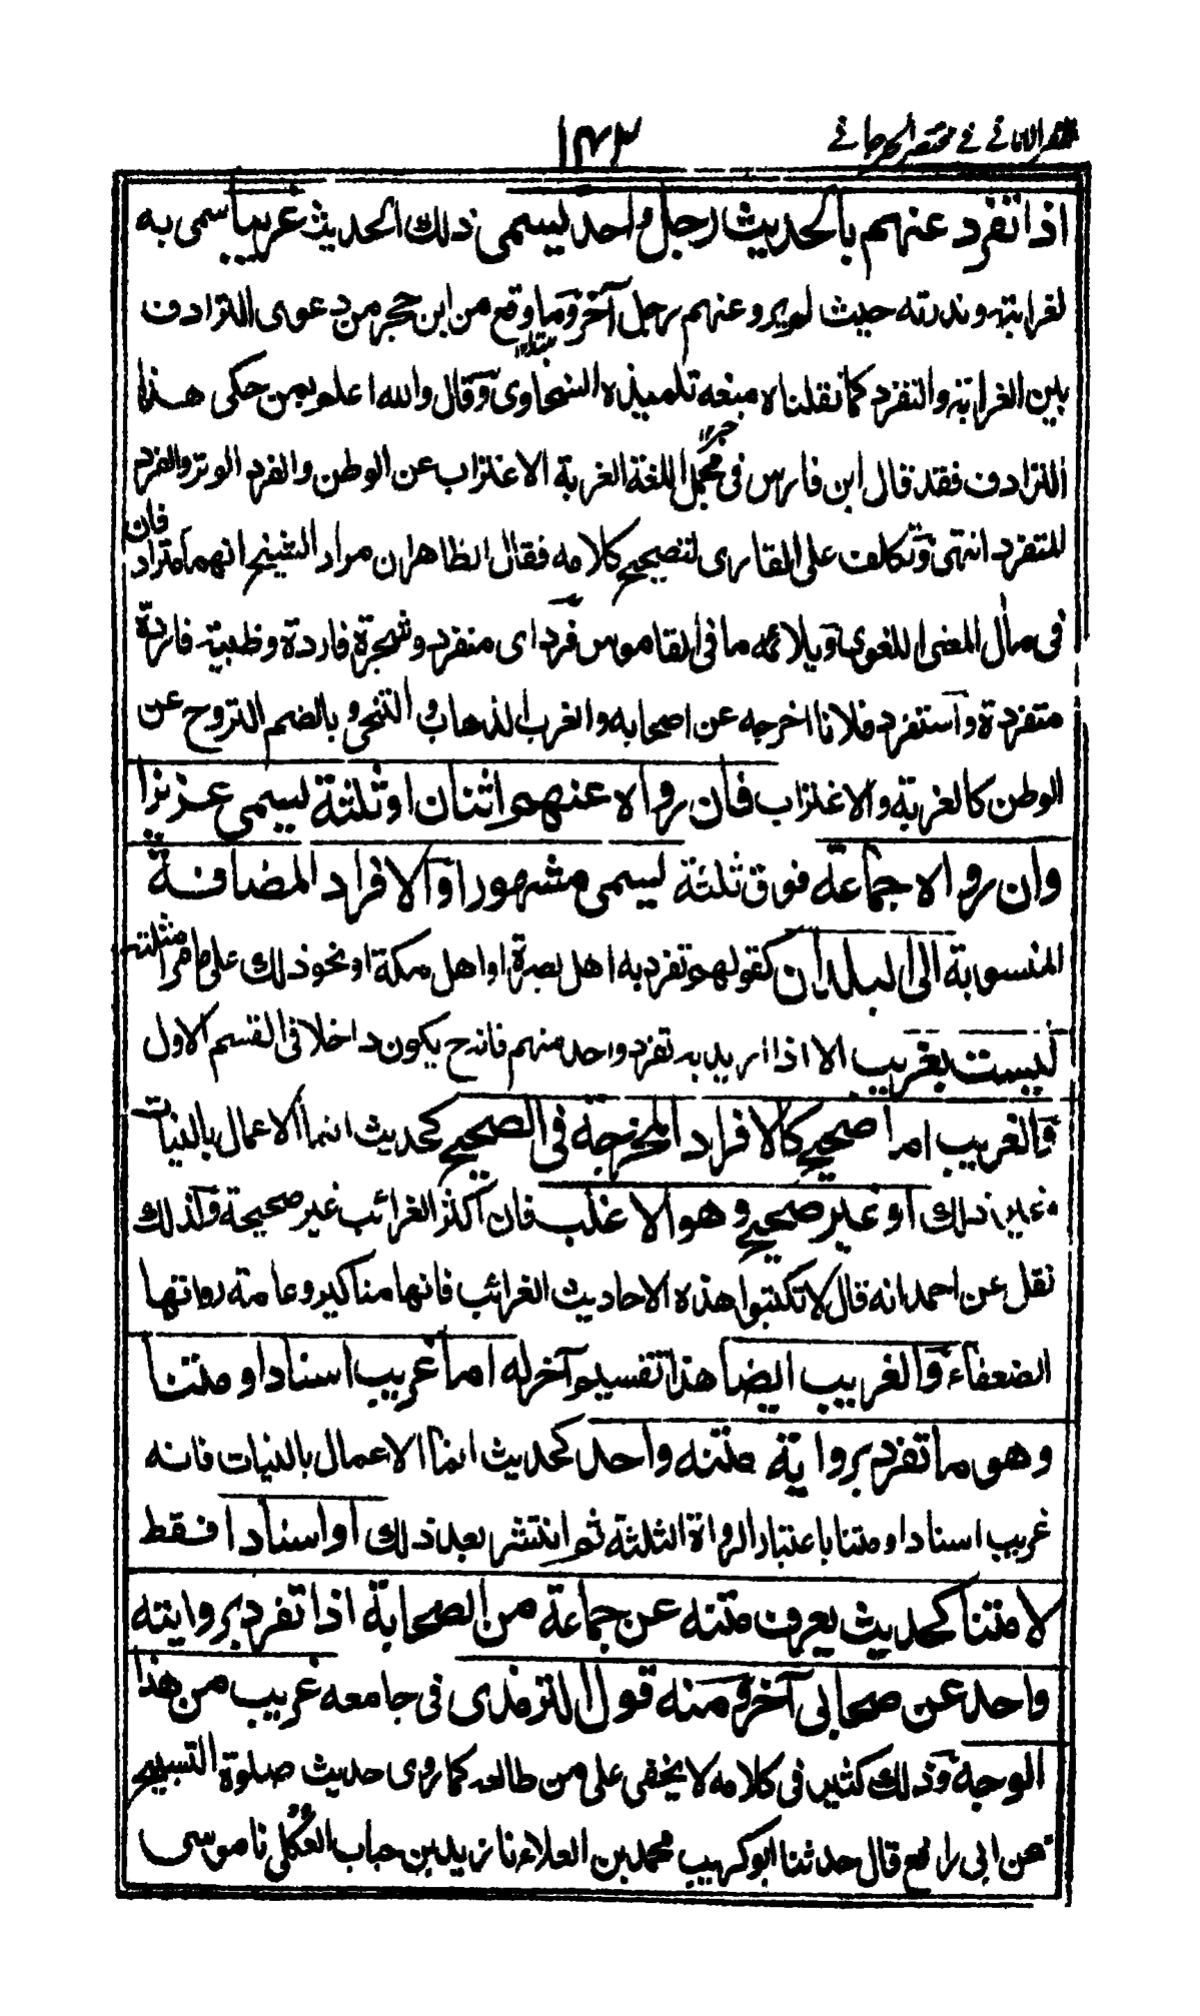 ظفر الاماني في مختصر الجرجاني
١٤٣
اذا تفرد عنهم بالحديث رجل واحد يسمى ذلك الحديث غريبا سمى به
لغرابته وندرته حيث لم يرو عنهم رجل آخر وما وقع من ابن حجر من دعوى الترادف
مبتدا١٢
بين الغرابة والتفرد كما نقلناه منعه تلميذه السخاوى وقال والله اعلم بمن حكى هذا
خبر١٢
الترادف فقد قال ابن فارس فى مجمل اللغة الغربة الاغتراب عن الوطن والفرد الوتر والفرد
المتفرد انتهى وتكلف على القارى لتصحيح كلامه فقال الظاهر ان مراد الشيخ انهما مترادفان
فى مأل المعنى اللغوى ويلائمه ما فى القاموس فرد اى منفرد وشجرة فاردة وظبية فاردة
متفردة واستفرد فلانا اخرجه عن اصحابه والغرب الذهاب و التنحى و بالضم النزوح عن
الوطن كالغربة والاغتراب فان رواه عنهم اثنان او ثلثة يسمى عزيزا
وان رواه جماعة فوق ثلثة يسمى مشهورا والافراد المضافة
المنسوبة الى البلدان كقولهم تفرد به اهل بصرة او اهل مكة او نحو ذلك على ما مر امثلته
ليست بغريب الا اذا اريد به تفرد واحد منهم فانه ح يكون داخلا فى القسم الاول
والغريب اما صحيح كالافراد المخرجة فى الصحيح كحديث انما الاعمال بالنيات
وغير ذلك او غير صحيح وهو الاغلب فان اكثر الغرائب غير صحيحة ولذلك
نقل عن احمد انه قال لا تكتبوا هذه الاحاديث الغرائب فانها مناكير وعامة رواتها
الضعفاء والغريب ايضا هذا تقسيم آخر له اما غريب اسنادا و متنا
وهو ما تفرد برواية متنه واحد كحديث انما الاعمال بالنيات فانه
غريب اسنادا و متنا باعتبار الرواة الثلثة ثم انتشر بعد ذلك او اسنادا فقط
لا متنا كحديث يعرف متنه عن جماعة من الصحابة اذا تفرد بروايته
واحد عن صحابى آخر ومنه قول الترمذى فى جامعه غريب من هذا
الوجه وذلك كثير فى كلامه لا يخفى على من طالعه كما روى حديث صلوة التسبيح
عن ابى رافع قال حدثنا ابو كريب محمد بن العلاء نا زيد بن حباب العكلى نا موسى